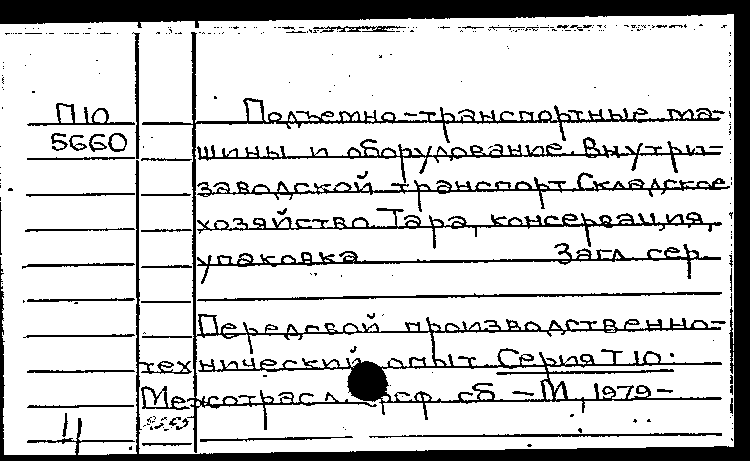 П10
5660
Подъемно-транспортные ма-
шины и оборудование. Внутри-
заводской транспорт. Складское
хозяйство. Тара, консервация,
упаковка Загл. сер.
Передовой производственно-
технический опыт. Серия Т10.
Межотрасл. реф. сб. - М., 1979-
4